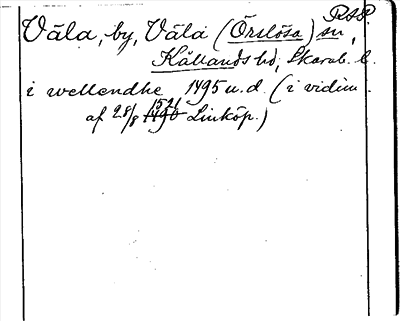 RSP.
Väla, by, Väla (Örslösa) sn,
Kållands hd, Skarab. l.
i wellendhe 1495 u.d. (i vidim.
af 28/8 1521 Linköp.)